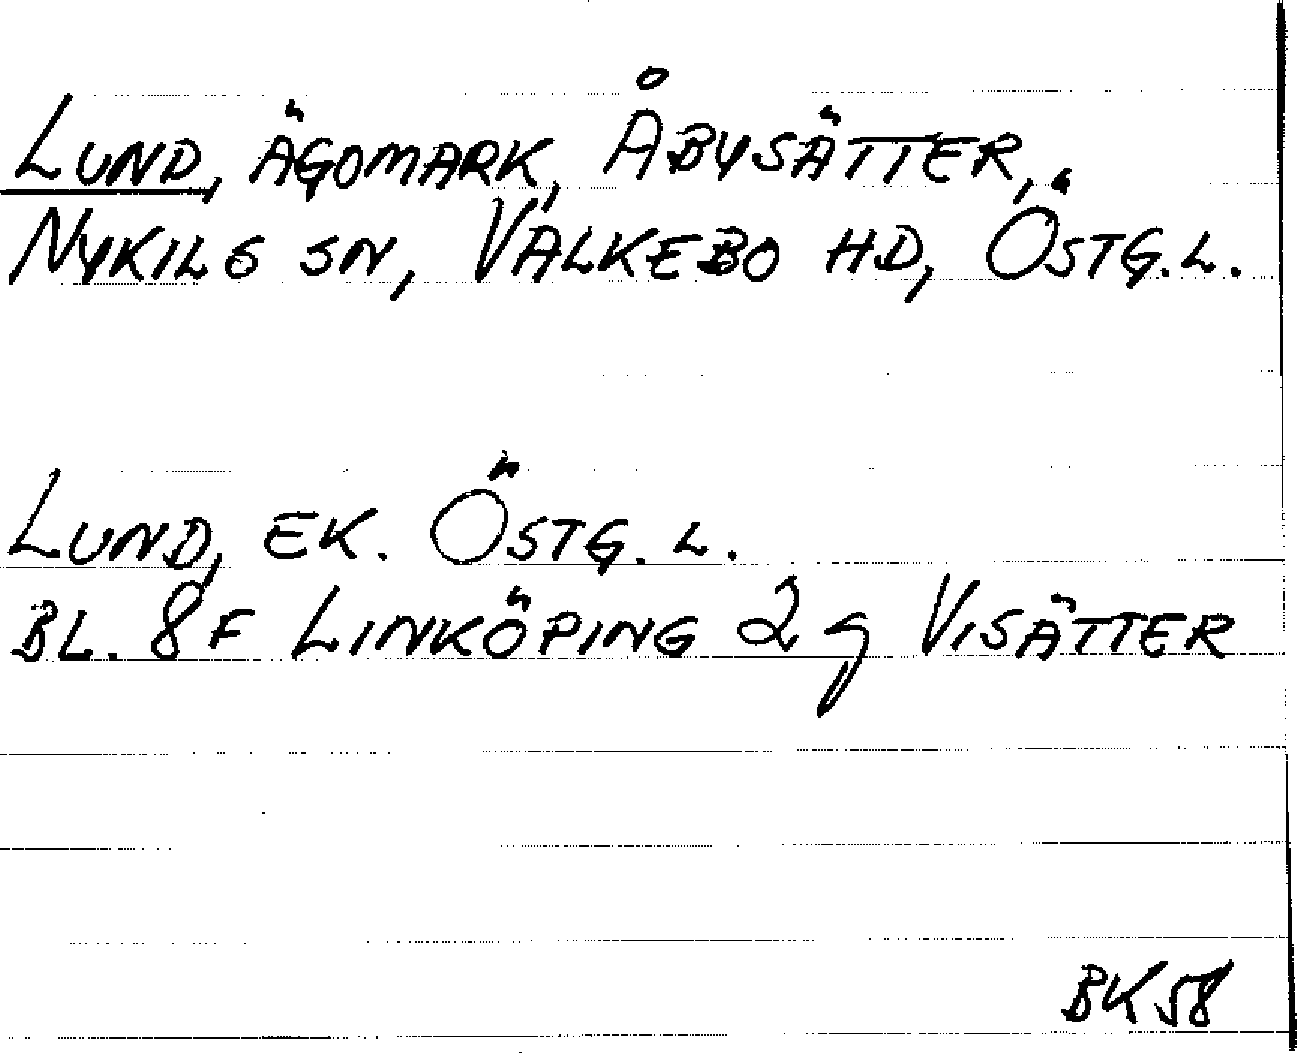 LUND, ÄGOMARK, ÅBYSÄTTER,
NYKILS SN, VALKEBO HD, ÖSTG.L.
LUND, EK. ÖSTG. L.
BL. 8F LINKÖPING 2g VISÄTTER
BK58